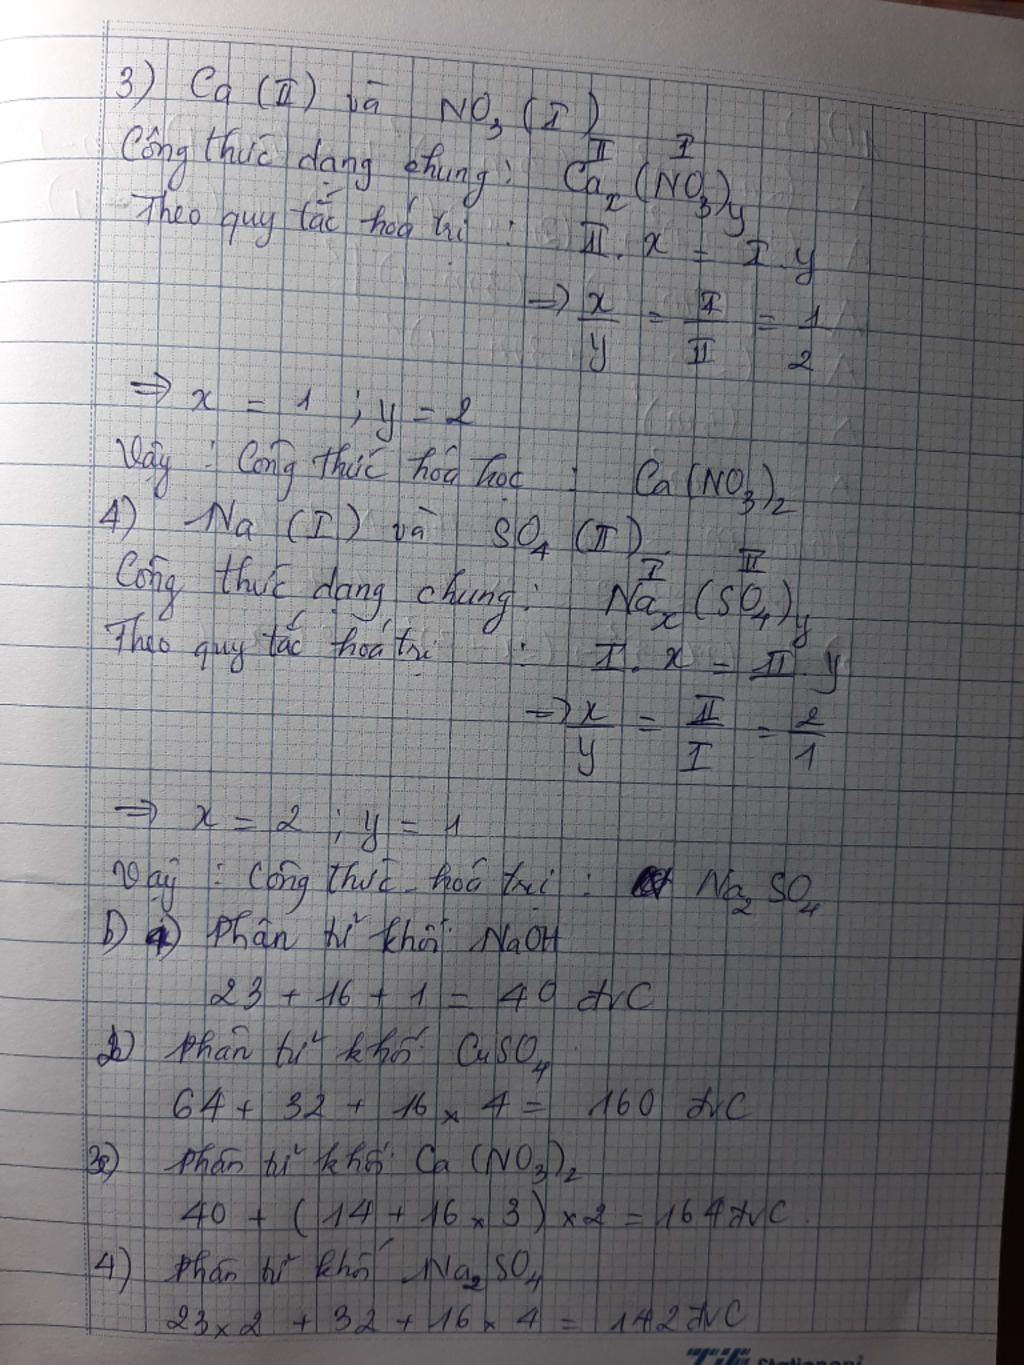 3) Ca (II) và NO₃ (I)
Công thức dạng chung: Caₓ^II (NO₃)y^I
Theo quy tắc hoá trị : II . x = I . y
=> x/y = I/II = 1/2
=> x = 1 ; y = 2
Vậy : Công thức hoá học : Ca(NO₃)₂
4) Na (I) và SO₄ (II)
Công thức dạng chung: Naₓ^I (SO₄)y^II
Theo quy tắc hoá trị : I . x = II . y
=> x/y = II/I = 2/1
=> x = 2 ; y = 1
Vậy : Công thức hoá trị : Na₂SO₄
b) 1) Phân tử khối NaOH
23 + 16 + 1 = 40 đvC
2) Phân tử khối CuSO₄
64 + 32 + 16 x 4 = 160 đvC
3) Phân tử khối Ca(NO₃)₂
40 + (14 + 16 x 3) x 2 = 164 đvC
4) Phân tử khối Na₂SO₄
23 x 2 + 32 + 16 x 4 = 142 đvC